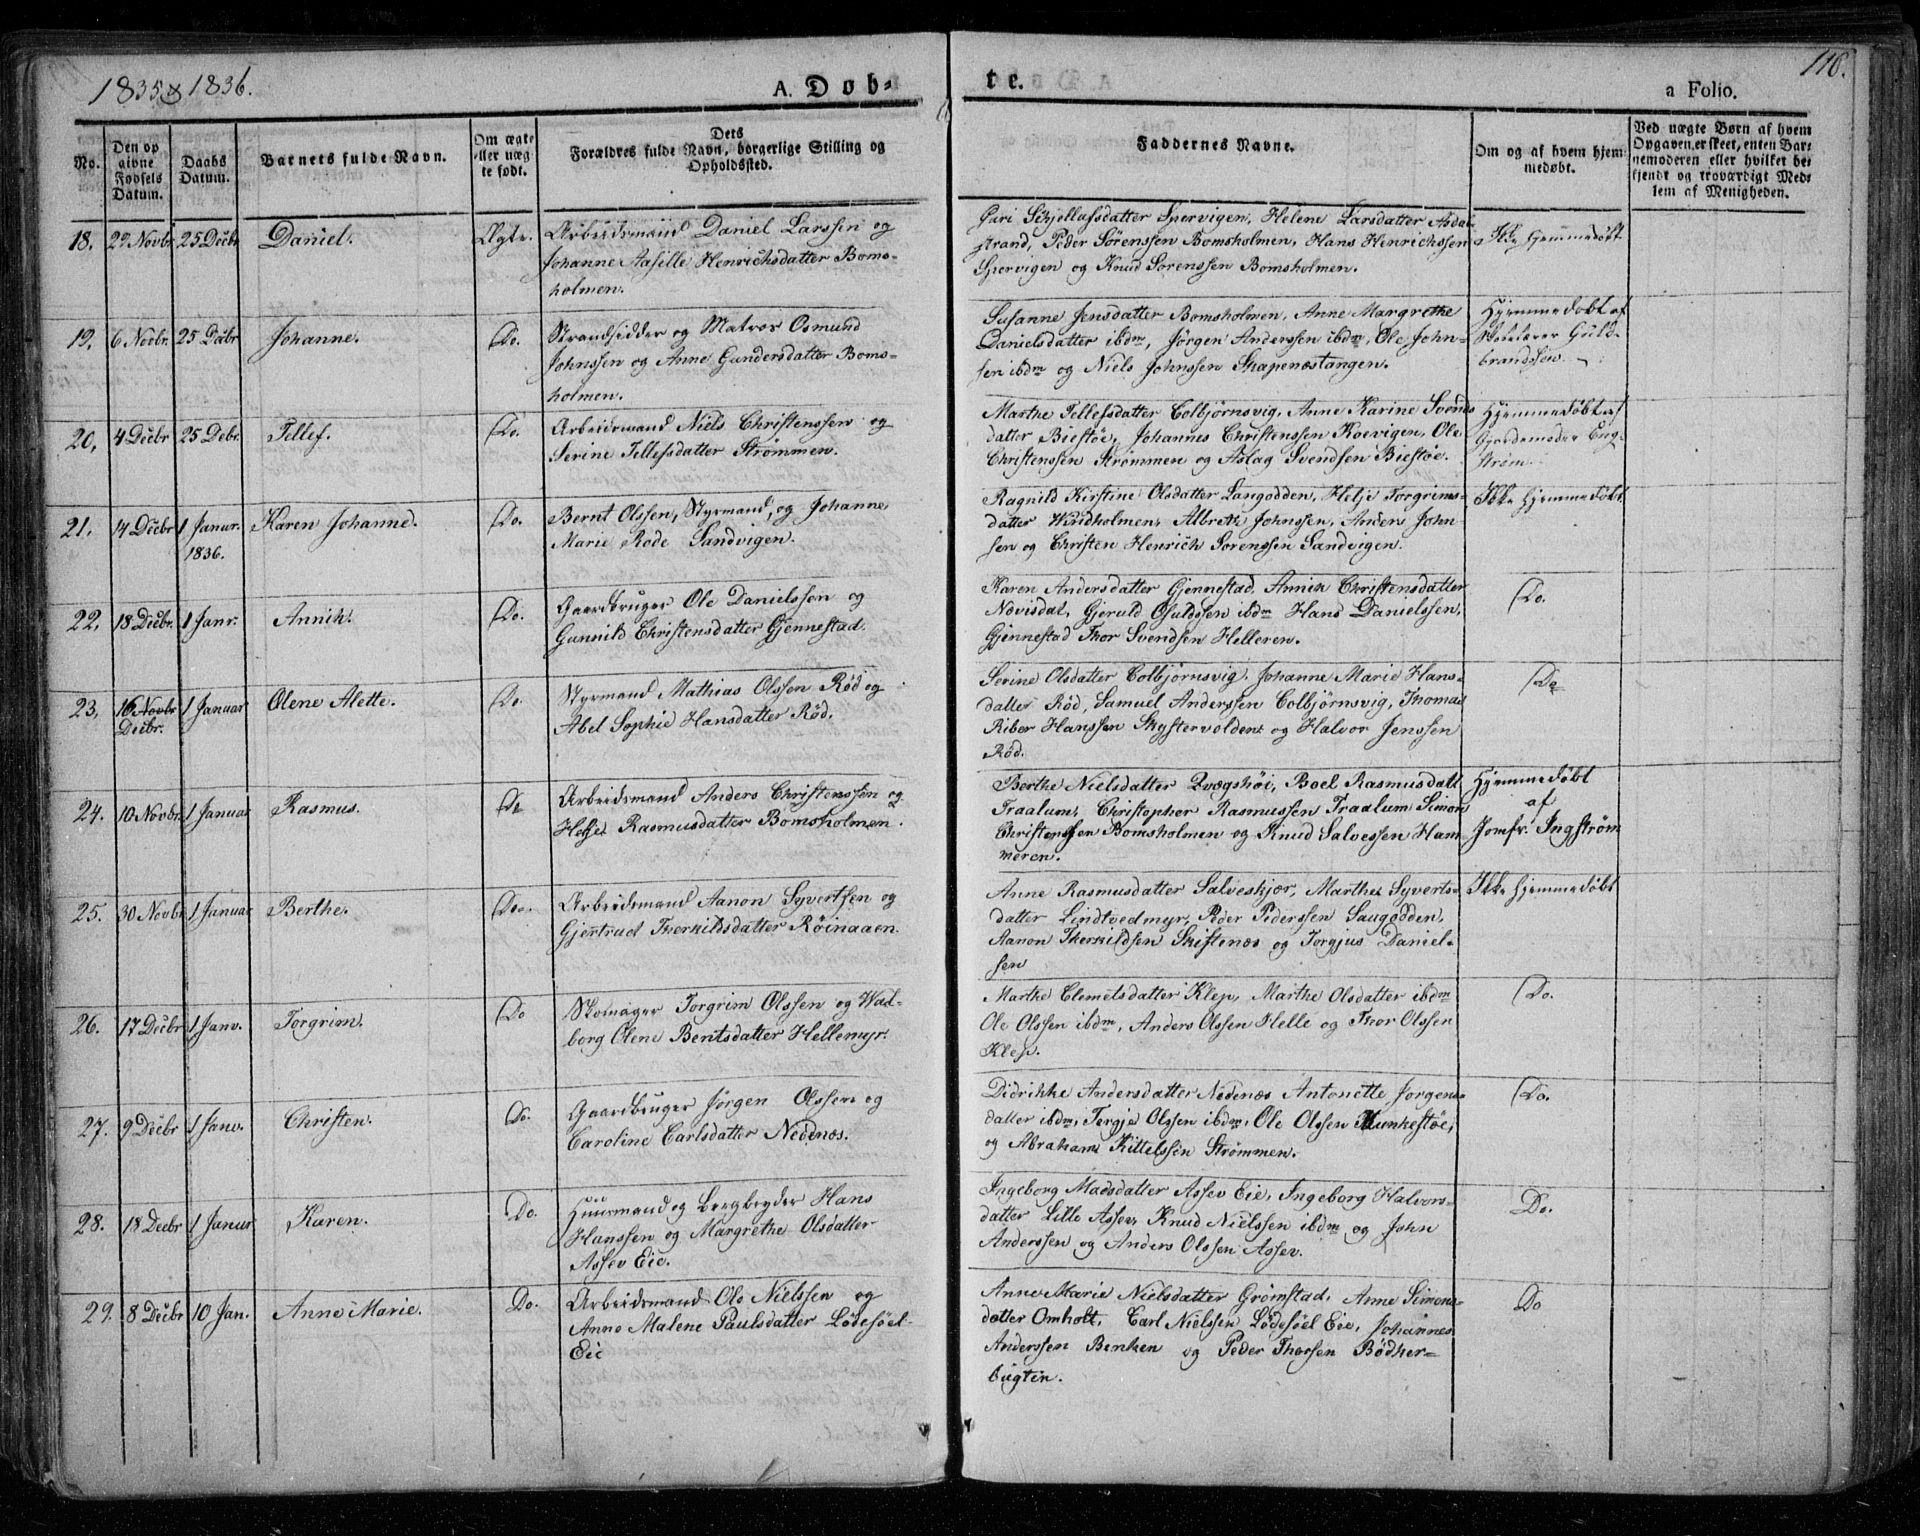 1835 & 1836.
A. Døb-
te.
116.
a Folio.
No.
Den op
givne
Fødsels
Datum.
Daabs
Datum.
Barnets fulde Navn.
Om ægte
eller uæg
te født.
Dets
Forældres fulde Navn, borgerlige Stilling og
Opholdssted.
Faddernes Navne.
Om og af hvem hjem
medøbt.
Ved uægte Børn af hvem
Opgaven er skeet, enten Bar-
nemoderen eller hvilket be-
kjendt og troværdigt Med-
lem af Menigheden.
18. 29 Novbr 25 Decbr Daniel. Ægte. Arbeidsmand Daniel Larssen og
Johanne Aasille Henrichsdatter Boms-
holmen.
Gari Skjellufsdatter Spervigen, Helene Larsdatter Asdal
strand, Peder Sörenssen Bomsholmen, Hans Henrichssen
Spervigen og Knud Sorenssen Bomsholmen.
Ikke hjemmedøbt
19. 6 Novbr. 25 Decbr Johanne. Do. Strandsidder og Matros Osmund
Johnssen og Anne Gundersdatter Boms-
holmen.
Susanne Jensdatter Bomsholmen, Anne Margrethe
Danielsdatter ibdm, Jörgen Anderssen ibdm, Ole John-
sen ibdm og Niels Johnssen Skapenæstangen.
Hjemmedøbt af
Skolelærer Guld-
brandsen.
20. 4 Decbr 25 Debr. Tellef. Do. Arbeidsmand Niels Christenssen og
Serine Tellefsdatter Strømmen.
Marthe Tellefsdatter Colbjørnsvig, Anne Karine Svends
datter Biestøe, Johannes Christenssen Koevigen, Ole
Christenssen Strømmen og Aslag Svendsen Biestøe.
Hjemmedøbt af
Gjordemoder Eng-
strøm.
21. 14 Decbr 1 Janur.
1836. Karen Johanne. Do. Bernt Olssen, Styrmand, og Johanne
Marie Rode Sandvigen.
Ragnild Kirstine Olsdatter Langodden, Helje Torgrims-
datter Windholmen, Albreth Johnssen, Anders John-
sen og Christen Henrich Sorenssen Sandvigen.
Ikke hjemmedøbt.
22. 18 Decbr. 1 Janr. Annih. Do. Gaardbruger Ole Danielssen og
Gunnild Christensdatter Gjennestad.
Karen Andersdatter Gjennestad, Annih Christensdatter
Novisdal, Gjeruld Osuldssen ibdm Hans Danielssen,
Gjennestad Thor Svendsen Helleren.
Do.
23. 16 Novbr
Decbr. 1 Januar Olene Alette. Do. Styrmand Mathias Olssen Rød og
Abel Sophie Hansdatter Rød.
Serine Olsdatter Colbjørnsvig, Johanne Marie Hans-
datter Rød, Samuel Anderssen Colbjørnsvig, Thomas
Riber Hanssen Skystervolden og Halvor Jenssen
Rød.
Do
24. 10 Novbr. 1 Januar Rasmus. Do Arbeidsmand Anders Christenssen og
Helje Rasmusdatter Bomsholmen.
Berthe Nielsdatter Qvægshøi, Boel Rasmusdatt
Traalum, Christopher Rasmussen Traalum Simon
Christenssen Bomsholmen og Knud Salvessen Ham
meren.
Hjemmedøbt
af
Jomfr. Ingstrøm
25. 30 Novbr 1 Januar Berthe. Do. Arbeidsmand Aanon Syvertsen og
Gjertrud Therkildsdatter Röinaaen.
Anne Rasmusdatter Salveskjær, Marthe Syverts-
datter Lindtvedmyr, Peder Pederssen Saugodden,
Aanon Therkildsen Skiftenæs og Torgjus Daniel-
sen
Ikke hjemmedøbt
26. 17 Decbr 1 Janv. Torgrim. Do Skomager Torgrim Olssen og Wad-
borg Olene Bentsdatter Hellemyr.
Marthe Clemetsdatter Klep, Marthe Olsdatter ibdm
Ole Olssen ibdm, Anders Olssen Helle og Thor Olssen
Klep.
Do.
27. 9 Decbr 1 Janv. Christen. Do. Gaardbruger Jørgen Olssen og
Caroline Carlsdatter Nedenæs.
Didrikke Andersdatter Nedenæs Antonette Jorgens-
datter ibdm, Tergje Olssen ibdm, Ole Olssen Munkestøe,
og Abraham Kittelssen Strømmen.
Do.
28. 18 Decbr 1 Janur Karen. Do. Huusmand og Bergbryder Hans
Hanssen og Margrethe Olsdatter
Assev Eie.
Ingeborg Madsdatter Assev Eie, Ingeborg Halvors-
datter Lille Assev, Knud Nielssen ibdm og John
Anderssen og Anders Olssen Assev.
Do.
29. 8 Decbr 10 Jan. Anne Marie. Do. Arbeidsmand Ole Nielssen og
Anne Malene Paulsdatter Lødesøel-
Eie
Anne Marie Nielsdatter Grømstad, Anne Simons-
datter Omholt, Carl Nielssen Lødesøel Eie, Johannes
Anderssen Benken og Peder Thorsen Bødker-
bugten.
Do